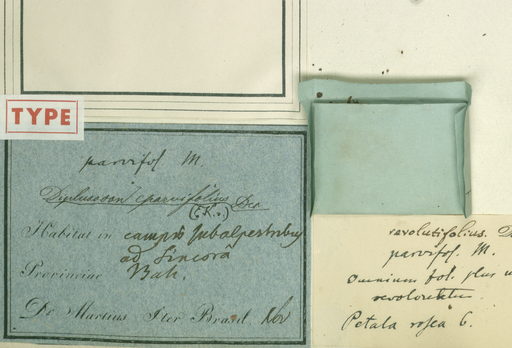 TYPE
parvifol M.
Diplusodon parvifolius Dec
Habitat in campis subalpestribus
ad Sincorá
Provinciae Bah.
Dr. Martius Iter Brasil. Nov
revolutifolius. D
parvifol. M.
omnium fol. plus
revolut
Petala rosea 6.